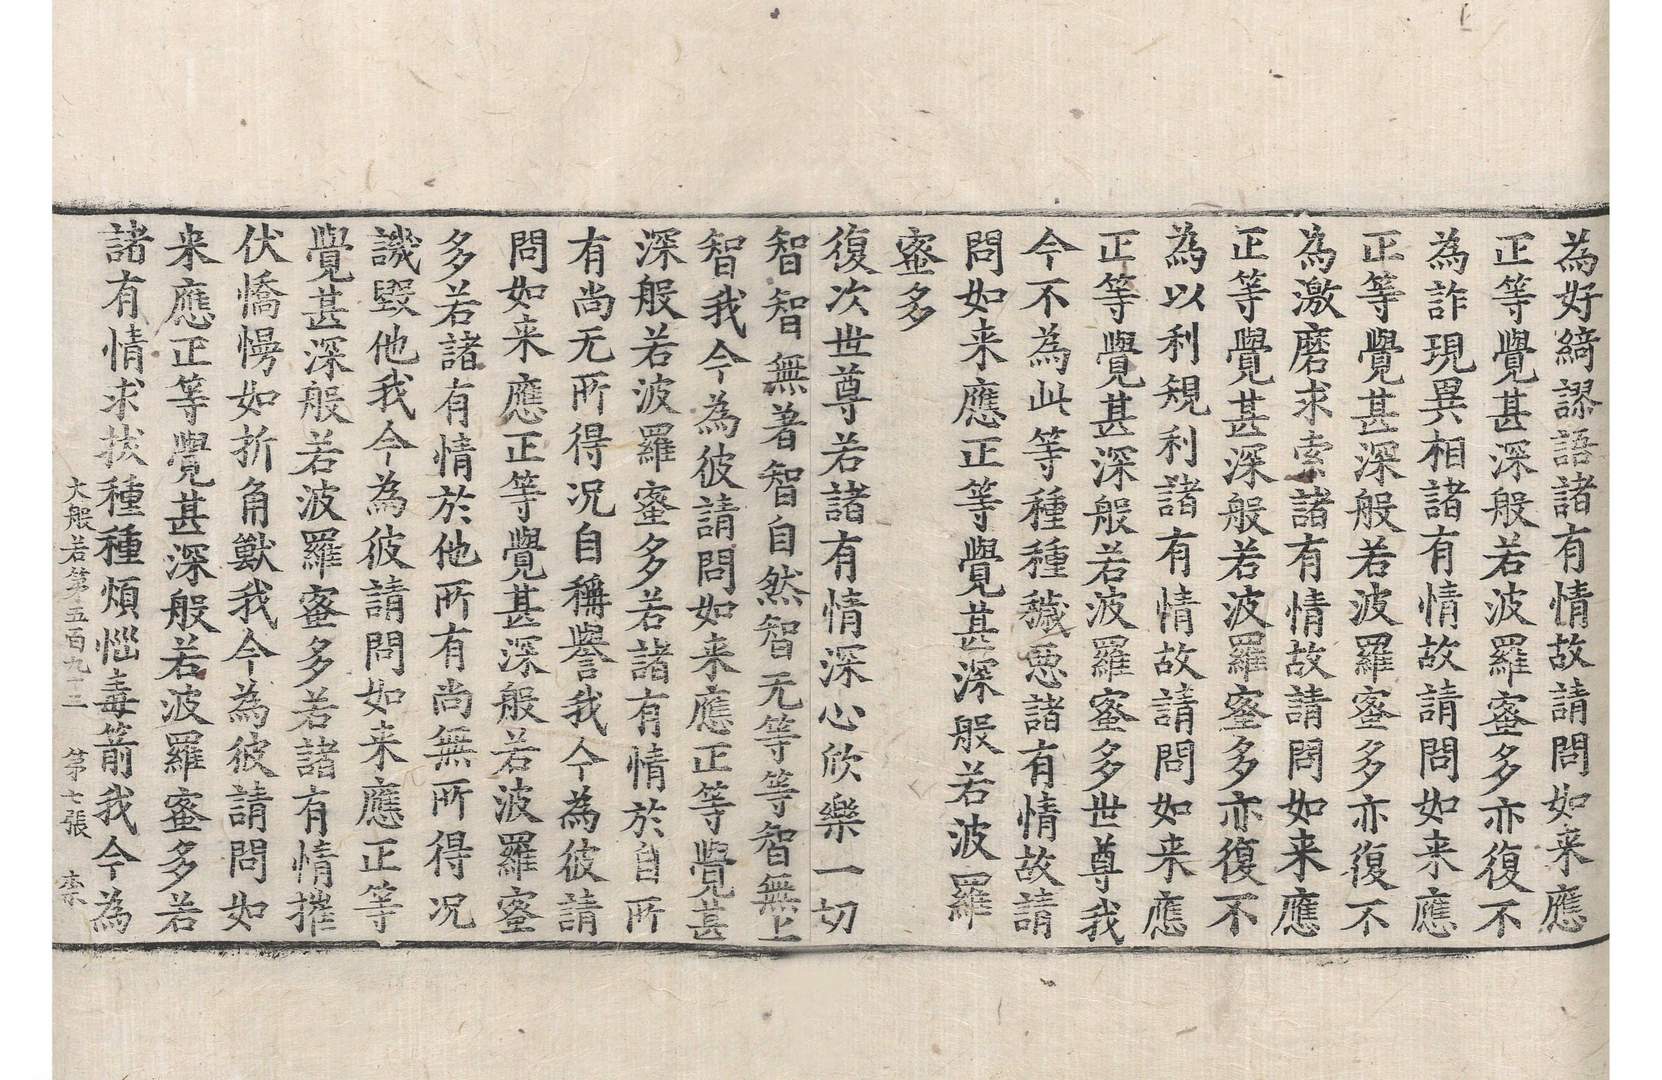 為好綺謬語諸有情故請問如来應
正等覺甚深般若波羅蜜多亦復不
為詐現異相諸有情故請問如来應
正等覺甚深般若波羅蜜多亦復不
為激磨求索諸有情故請問如来應
正等覺甚深般若波羅蜜多亦復不
為以利規利諸有情故請問如来應
正等覺甚深般若波羅蜜多世尊我
今不為此等種種穢惡諸有情故請
問如来應正等覺甚深般若波羅
蜜多
復次世尊若諸有情深心欣樂一切
智智無著智自然智无等等智無上
智我今為彼請問如来應正等覺甚
深般若波羅蜜多若諸有情於自所
有尚无所得況自稱譽我今為彼請
問如来應正等覺甚深般若波羅蜜
多若諸有情於他所有尚無所得況
譏毀他我今為彼請問如来應正等
覺甚深般若波羅蜜多若諸有情摧
伏憍慢如折角獸我今為彼請問如
来應正等覺甚深般若波羅蜜多若
諸有情求拔種種煩惱毒箭我今為
大般若第五百九十三 第七張 柰